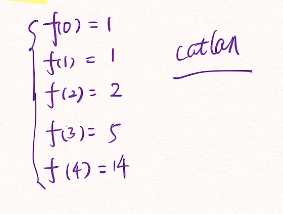 f(0) = 1
f(1) = 1
f(2) = 2
f(3) = 5
f(4) = 14
catlan